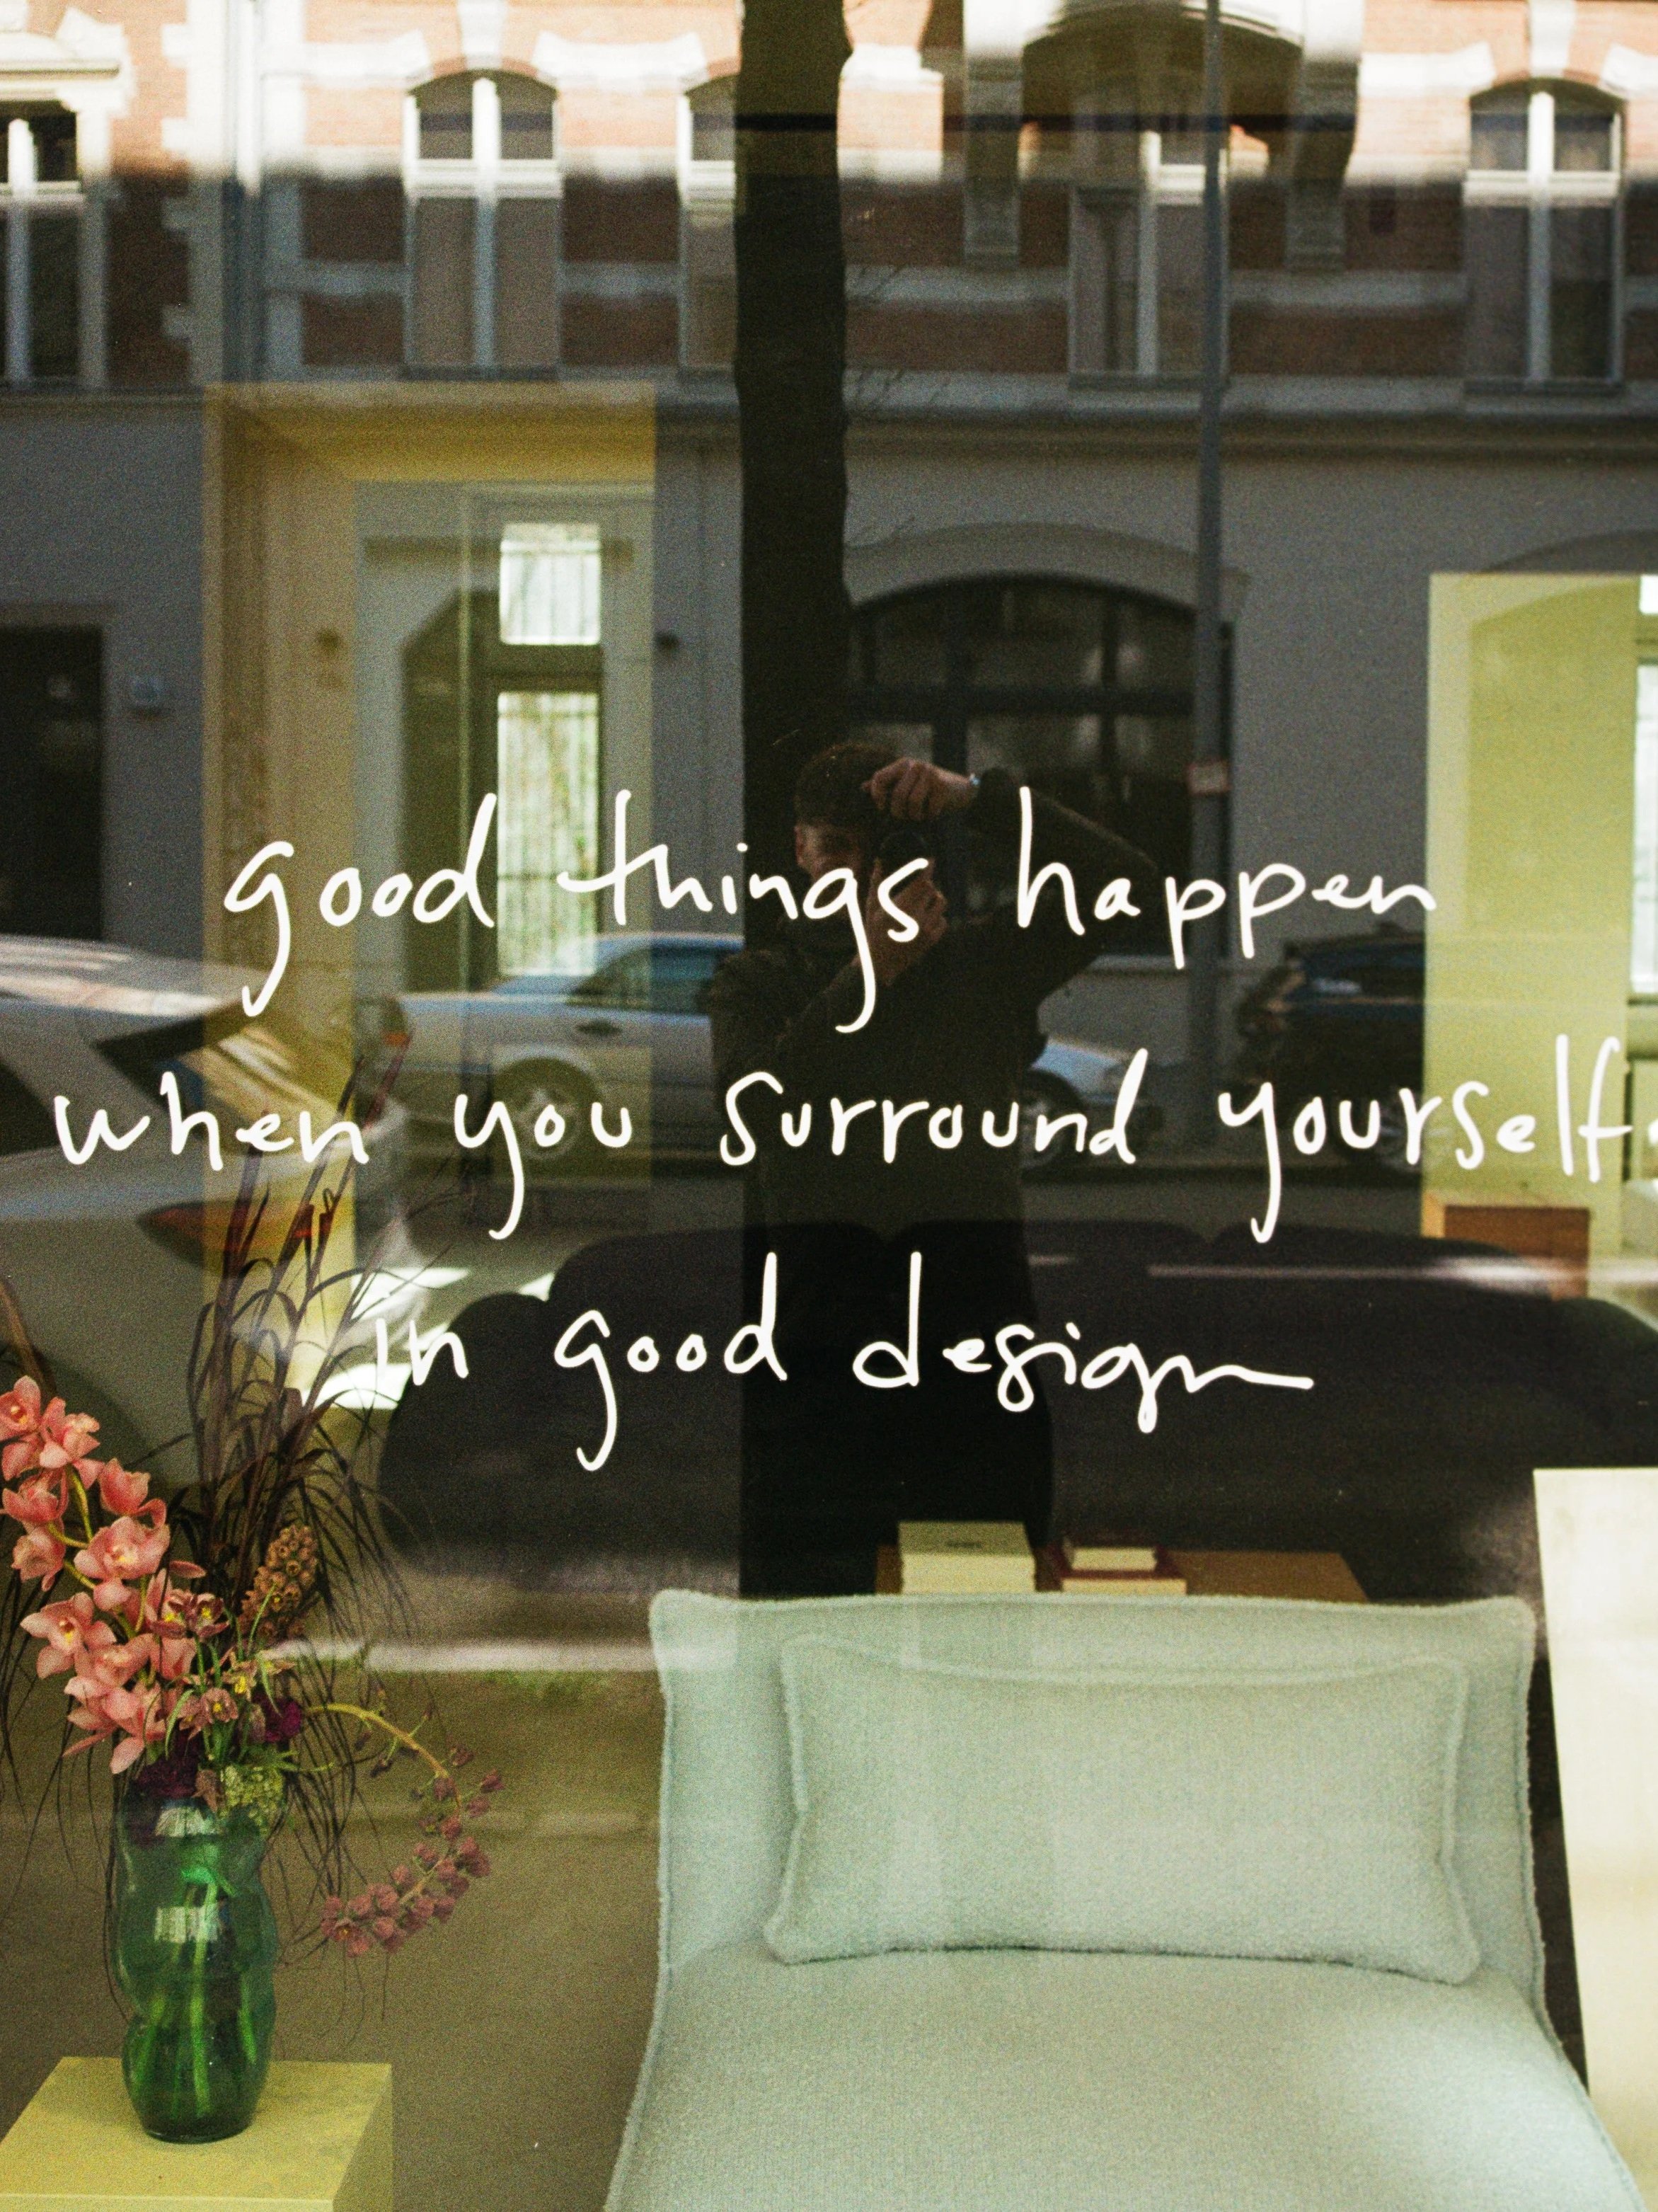 good things happen
when you surround yourself
in good design